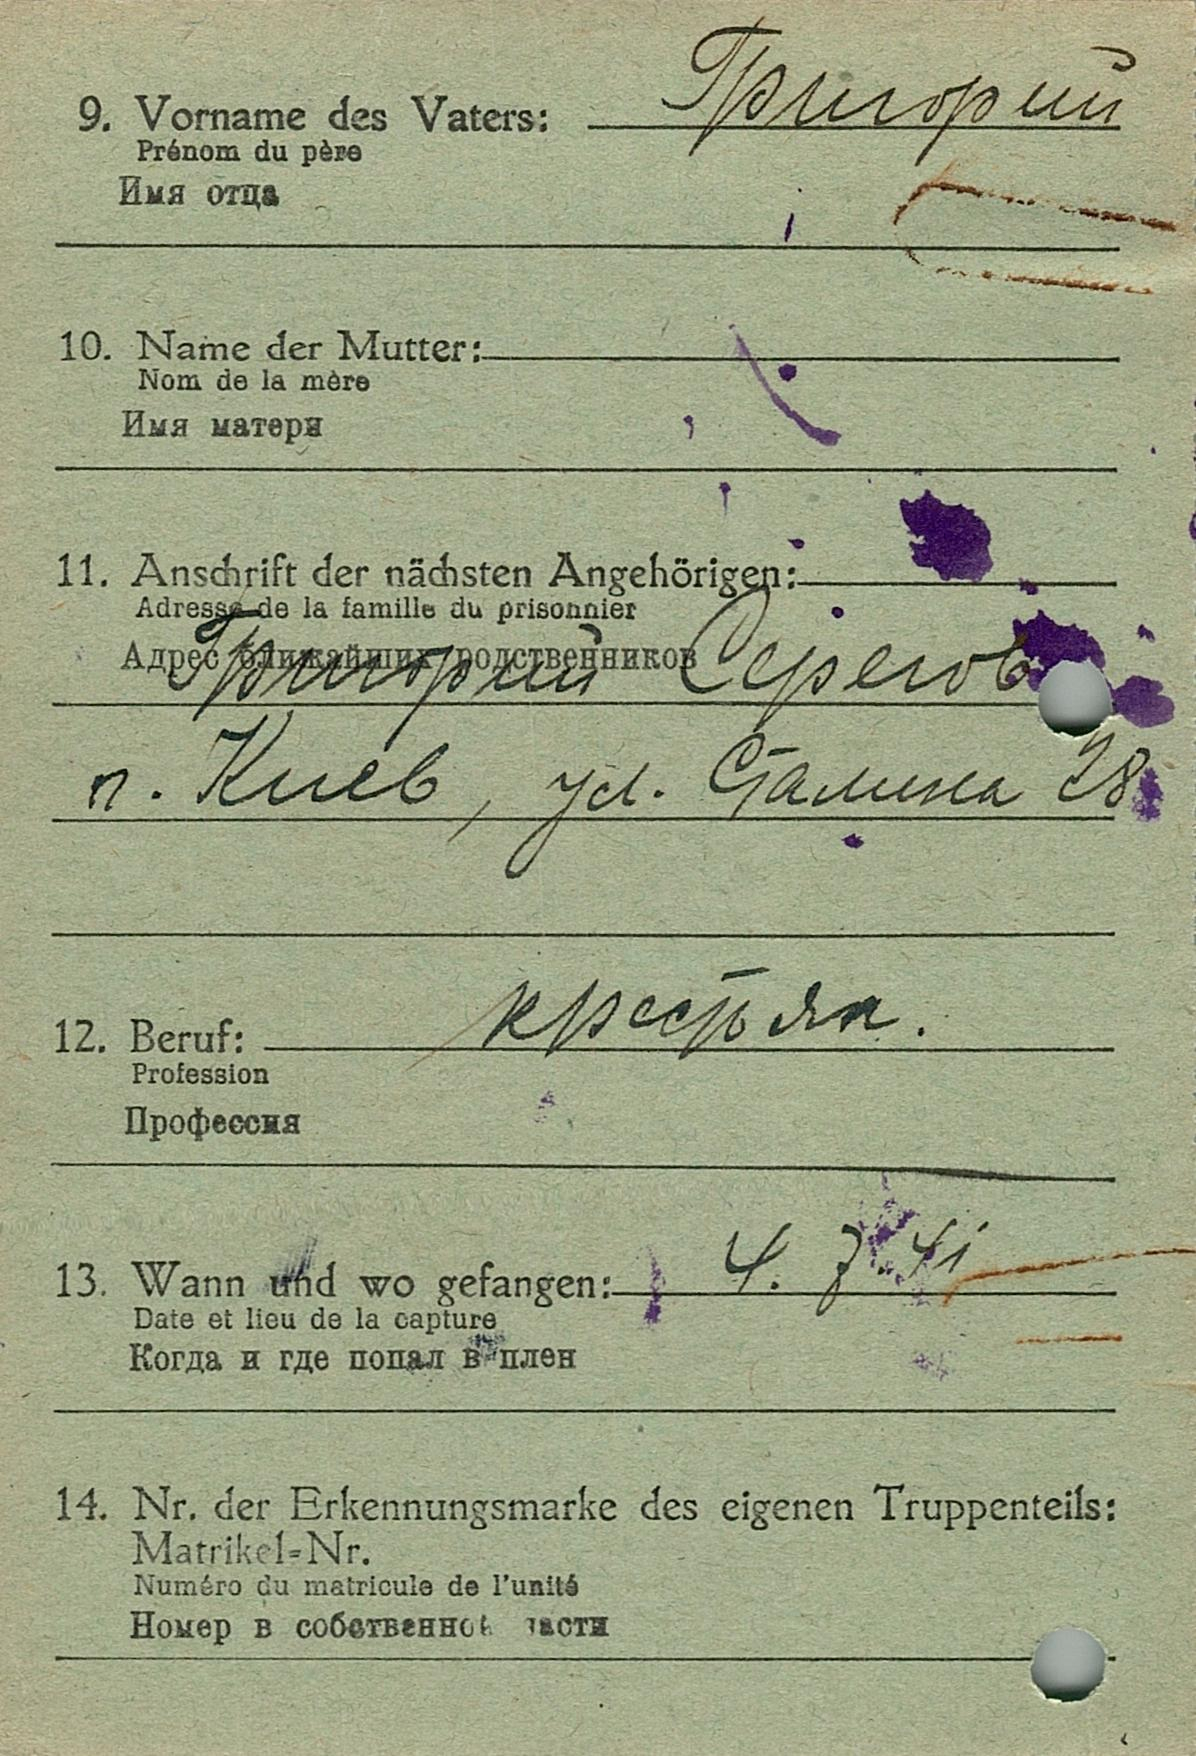 9. Vorname des Vaters: Григорий
Prénom du père
Имя отца
10. Name der Mutter:
Nom de la mère
Имя матери
11. Anschrift der nächsten Angehörigen:
Adresse de la famille du prisonnier
Адрес ближайших родственников
Григорий Серегов
г. Киев, ул. Сталина 28
12. Beruf: крестьян.
Profession
Профессия
13. Wann und wo gefangen: 4. 7. 41
Date et lieu de la capture
Когда и где попал в плен
14. Nr. der Erkennungsmarke des eigenen Truppenteils:
Matrikel=Nr.
Numéro du matricule de l'unité
Номер в собственной части